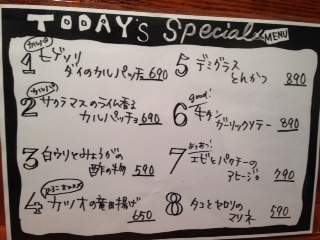 TODAY's Special MENU
カルパ
1 ヒゲソリ
ダイのカルパッチョ 690
カルパ
2 サクラマスのライム香る
カルパッチョ 690
3 白ウリとみょうがの
酢の物 590
4 カツオの竜田揚げ
650
5 デミグラス
とんかつ 890
good!
6 牛タン
ガーリックソテー 890
7 エビとパクチーの
アヒージョ 790
8 タコとセロリの
マリネ 590